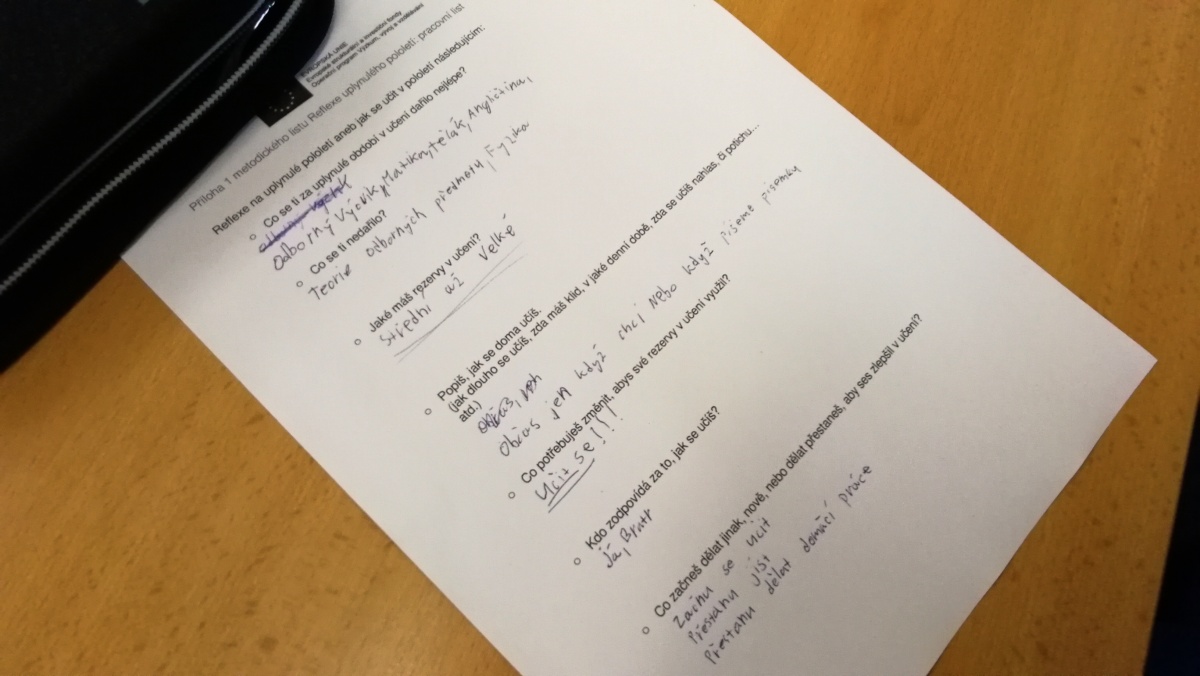 EVROPSKÁ UNIE
Evropské strukturální a investiční fondy
Operační program Výzkum, vývoj a vzdělávání
Příloha 1 metodického listu Reflexe uplynulého pololetí: pracovní list
Reflexe na uplynulé pololetí aneb jak se učit v pololetí následujícím:
Co se ti za uplynulé období v učení dařilo nejlépe?
Odborný Výcvik, Matika, tělák, Angličtina,
Co se ti nedařilo?
Teorie odborných předmětů, Fyzika
Jaké máš rezervy v učení?
střední až velké
Popiš, jak se doma učíš.
(jak dlouho se učíš, zda máš klid, v jaké denní době, zda se učíš nahlas, či potichu...
atd.)
občas jen když chci nebo když píšeme písemky
Co potřebuješ změnit, abys své rezervy v učení využil?
Učit se!!!
Kdo zodpovídá za to, jak se učíš?
Já,
Co začneš dělat jinak, nově, nebo dělat přestaneš, aby ses zlepšil v učení?
Začnu se učit
Přestanu jíst
Přestanu dělat domácí práce